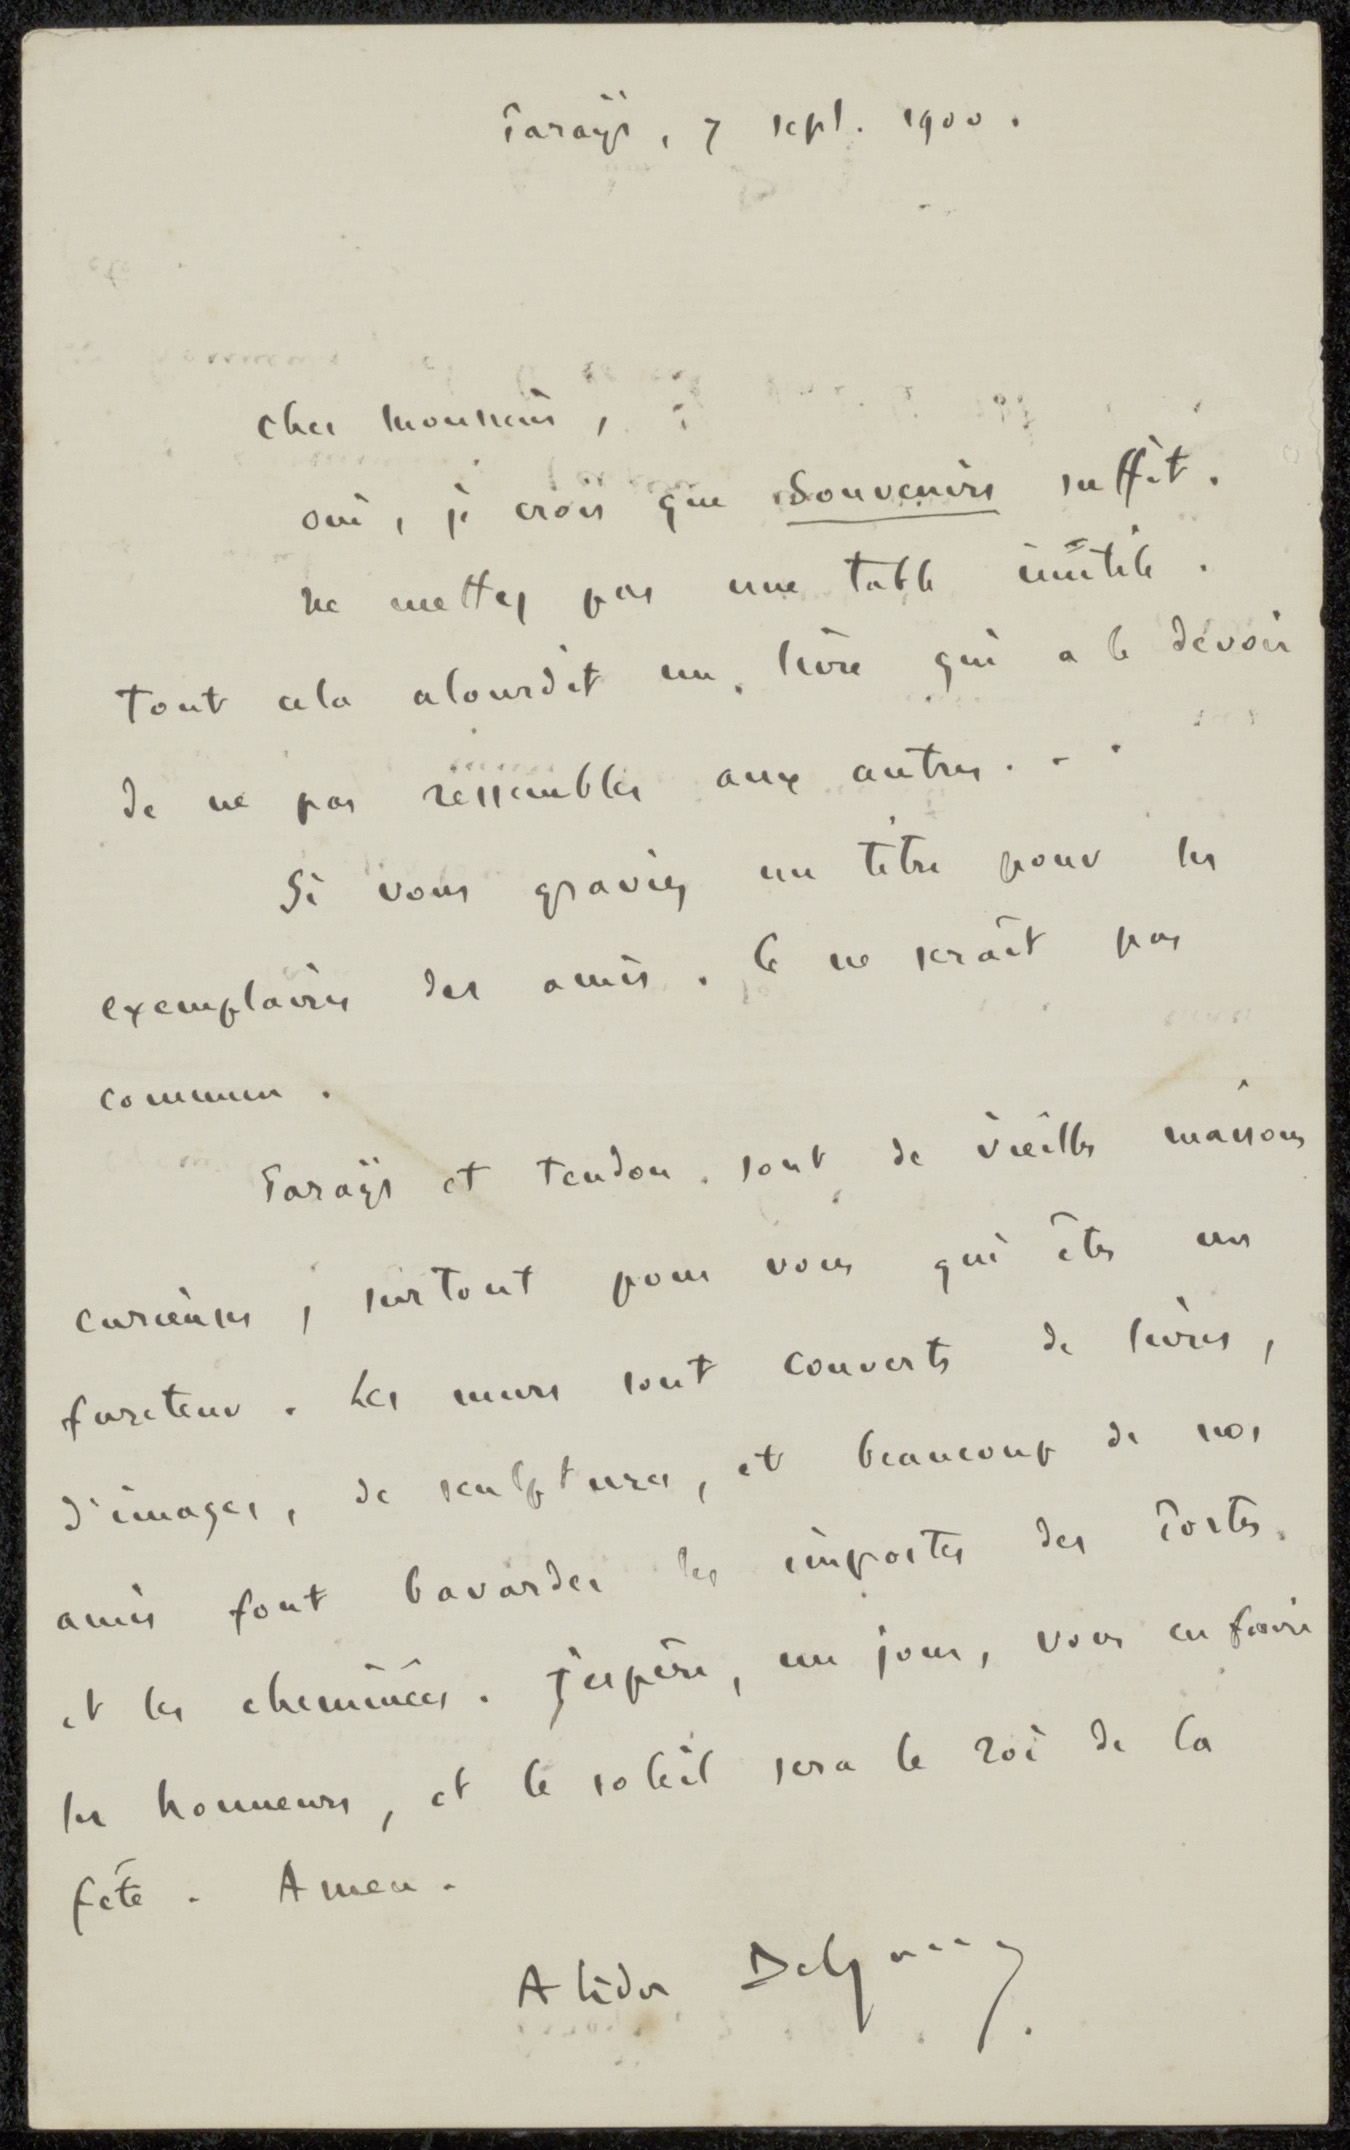 Parays, 7 sept. 1900.
Cher Monsieur,
oui, je crois que Souvenirs suffit.
Ne mettez pas une table inutile.
Tout cela alourdit un livre qui a le devoir
de ne pas ressembler aux autres...
Si vous graviez un titre pour les
exemplaires des amis. Ce ne serait pas
commun.
Parays et Tendon sont de vieilles maisons
curieuses, surtout pour vous qui êtes un
fureteur. Les murs sont couverts de livres,
d'images, de sculptures, et beaucoup de nos
amis font bavarder les impostes des Portes
et les cheminées. J'espère, un jour, vous en faire
les honneurs, et le soleil sera le roi de la
fête. Amen.